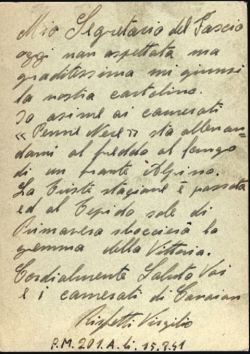 Mio Segretario del Fascio
oggi non aspettata ma
graditissima mi giunse
la vostra cartolina.
Io asime ai camerati
"Penne Nere" sto allenan
domi al freddo al fango
di un fronte Alpino.
La triste stagione è passata
ed al tepido sole di
Primavera sboccierà la
gemma della Vittoria.
Cordialmente Saluto Voi
e i camerati di
Rispetti Virgilio
P.M. 201. A. li 15.3.41